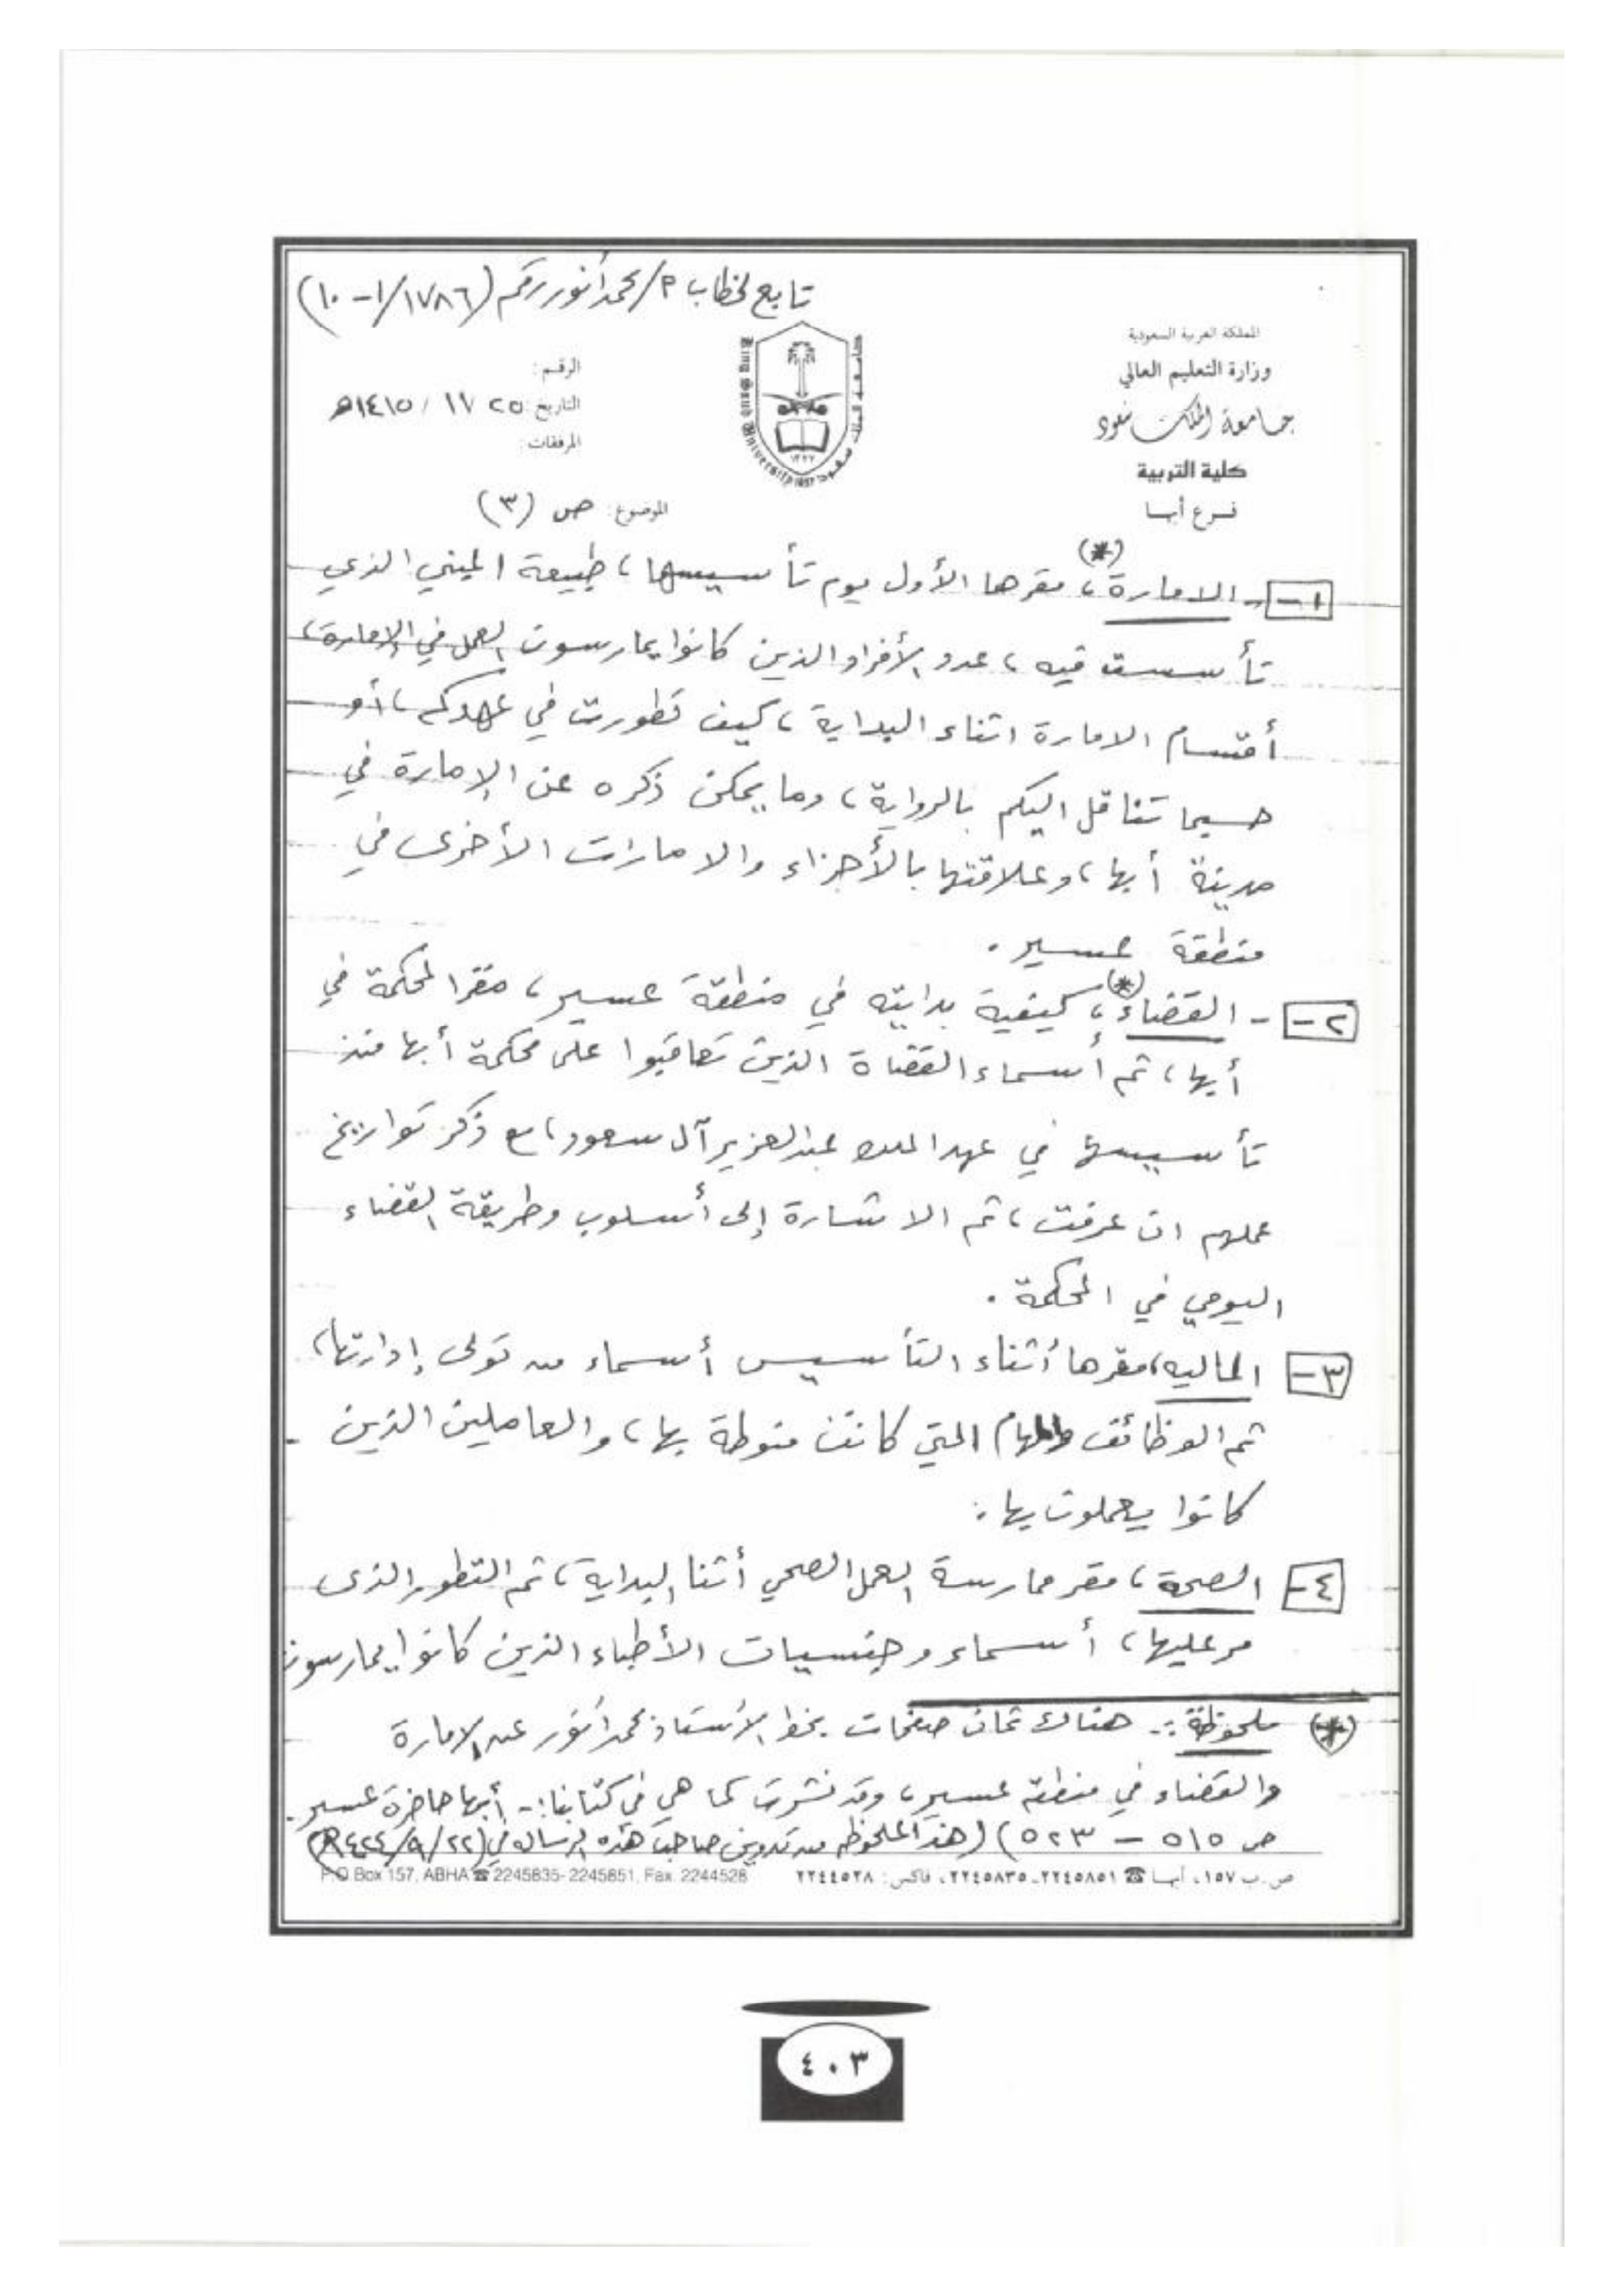 تابع لخطاب م/محمد أنور رقم (١٧٨٦/ ١-١٠)
المملكة العربية السعودية
وزارة التعليم العالي
جامعة الملك سعود
كلية التربية
فرع أبها
King Saud University 1957
جامعة الملك سعود
١٣٧٧
الرقم:
التاريخ: ٢٥ / ١١ / ١٤١٥هـ
المرفقات:
الموضوع: ص (٣)
١- - الامارة (*)، مقرها الأول يوم تأسيسها، طبيعة المبنى الذي
تأسست فيه، عدد الأفراد الذين كانوا يمارسون العمل في الإمارة،
أقسام الامارة اثناء البداية، كيف تطورت في عهدكم، أو
حسبما تناقل اليكم بالرواية، وما يمكن ذكره عن الإمارة في
مدينة أبها، وعلاقتها بالأجزاء والامارات الأخرى في
منطقة عسير.
٢- - القضاء (*)، كيفية بدايته في منطقة عسير، مقر المحكمة في
أبها، ثم أسماء القضاة الذين تعاقبوا على محكمة أبها منذ
تأسيسها في عهد الملك عبدالعزيز آل سعود، مع ذكر تواريخ
عملهم ان عرفت، ثم الاشارة إلى أسلوب وطريقة القضاء
اليومي في المحكمة.
٣- الماليه، مقرها أثناء التأسيس أسماء من تولى إدارتها،
ثم الوظائف والمهام التي كانت منوطة بها، والعاملين الذين
كانوا يعملون بها.
٤- الصحة، مقر ممارسة العمل الصحي أثنا البداية، ثم التطور الذى
مر عليها، أسماء وجنسيات الأطباء الذين كانوا يمارسون
(*) ملحوظة:- هناك ثمان صفحات بخط الأستاذ محمد أنور عن الامارة
والقضاء في منطقة عسير، وقد نشرت كما هي في كتابنا:- أبها حاضرة عسير.
ص ٥١٥ - ٥٢٣) (هذه الملحوظه من تدوين صاحب هذه الرساله في (٢٢/٩/١٤٢٤هـ)
P.O.Box 157, ABHA ☎ 2245835- 2245851, Fax. 2244528
ص.ب ١٥٧، أبها ☎ ٢٢٤٥٨٥١-٢٢٤٥٨٣٥، فاكس: ٢٢٤٤٥٢٨
٤٠٣